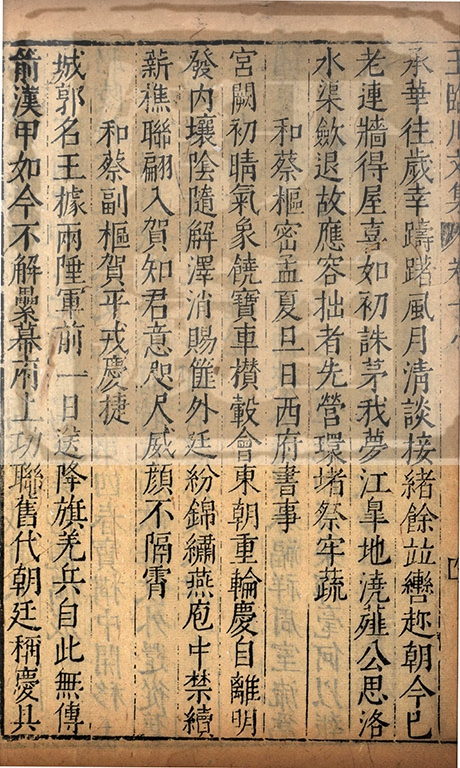 王臨川文集 卷十八
承華往歲幸躊躇風月淸談接緒餘並轡趂朝今巳
老連牆得屋喜如初誅茅我夢江臯地澆薤公思洛
水渠歛退故應容拙者先營環堵祭牢蔬
和蔡樞密孟夏旦日西府書事
宮闕初晴氣象饒寶車攅轂會東朝重輪慶自離明
發内壤陰隨解澤消賜篚外廷紛錦繡燕庖中禁續
薪樵聯翩入賀知君意咫尺威顏不隔霄
和蔡副樞賀平戎慶捷
城郭名王據兩陲軍前一日送降旗羌兵自此無傳
箭漢甲如今不解纍幕府上功聯舊伐朝廷稱慶具